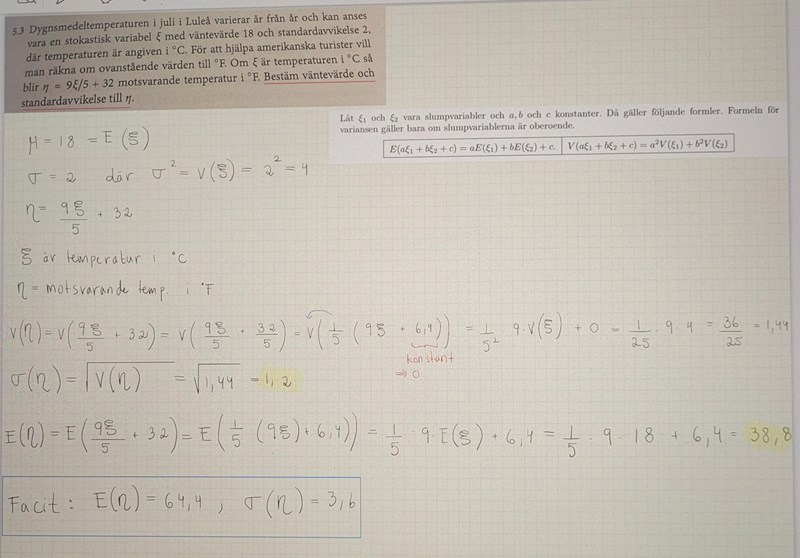 5.3 Dygnsmedeltemperaturen i juli i Luleå varierar år från år och kan anses
vara en stokastisk variabel ξ med väntevärde 18 och standardavvikelse 2,
där temperaturen är angiven i °C. För att hjälpa amerikanska turister vill
man räkna om ovanstående värden till °F. Om ξ är temperaturen i °C så
blir η = 9ξ/5 + 32 motsvarande temperatur i °F. Bestäm väntevärde och
standardavvikelse till η.
Låt ξ₁ och ξ₂ vara slumpvariabler och a, b och c konstanter. Då gäller följande formler. Formeln för
variansen gäller bara om slumpvariablerna är oberoende.
E(aξ₁ + bξ₂ + c) = aE(ξ₁) + bE(ξ₂) + c. V(aξ₁ + bξ₂ + c) = a²V(ξ₁) + b²V(ξ₂)
μ = 18 = E(ξ)
σ = 2 där σ² = V(ξ) = 2² = 4
η = 9ξ/5 + 32
ξ är temperatur i °C
η = motsvarande temp. i °F
V(η) = V(9ξ/5 + 32) = V(9ξ/5 + 32/5) = V(1/5 (9ξ + 6,4)) = 1/5² · 9 · V(ξ) + 0 = 1/25 · 9 · 4 = 36/25 = 1,44
konstant
⇒ 0
σ(η) = √V(η) = √1,44 = 1,2
E(η) = E(9ξ/5 + 32) = E(1/5 (9ξ) + 6,4)) = 1/5 · 9 · E(ξ) + 6,4 = 1/5 · 9 · 18 + 6,4 = 38,8
Facit: E(η) = 64,4 , σ(η) = 3,6